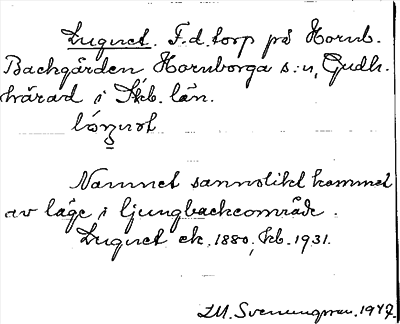 Lugnet. F.d. torp på Hornb.
Backgården Hornborga s:n, Gudh.
härad i Skb. län.
Namnet sannolikt kommet
av läge i ljungbackeområde.
Lugnet ek. 1880, kb. 1931.
I.M. Svenungsson. 1947.